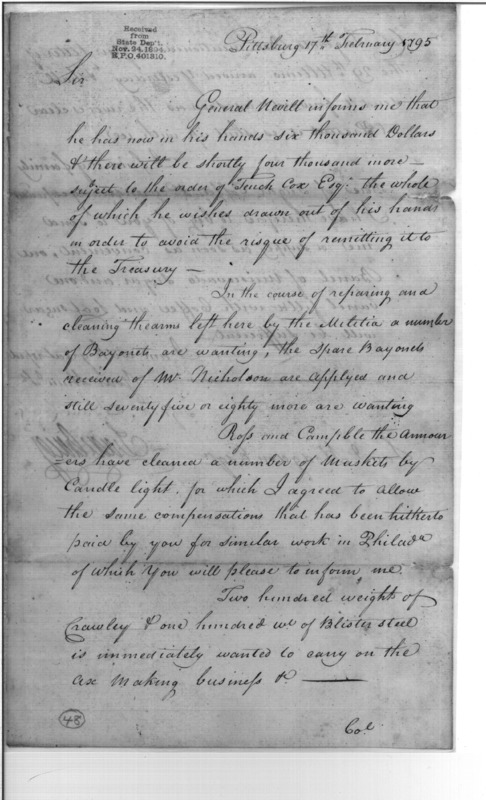 Received
from
State Dep't.
Nov. 24, 1894
R.P.O. 401810.
Pittsburg 17th February 1795
Sir
General Nevill informs me that
he has now in his hands six thousand Dollars
& there will be shortly four thousand more —
subject to the order of Tench Cox Esqr. the whole
of which he wishes drawn out of his hands
in order to avoid the risque of remitting it to
the Treasury —
In the course of repairing and
cleaning the arms left here by the Militia a number
of Bayonets are wanting, the Spare Bayonets
received of Mr. Nicholson are applyed and
still seventy five or eighty more are wanting
Ross and Campble the Armour
=ers have cleaned a number of Muskets by
Candle light, for which I agreed to allow
the same compensations that has been hitherto
paid by you for similar work in Philada
of which You will please to inform me
Two hundred weight of
Crawley & one hundred wt of Blister steel
is immediately wanted to carry on the
ax making business &c. —
Col
48